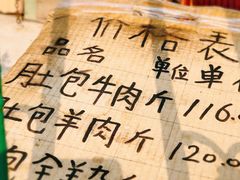 价格表
品名 单位 单
肚包牛肉 斤 116.
肚包羊肉 斤 120.0
包全羊